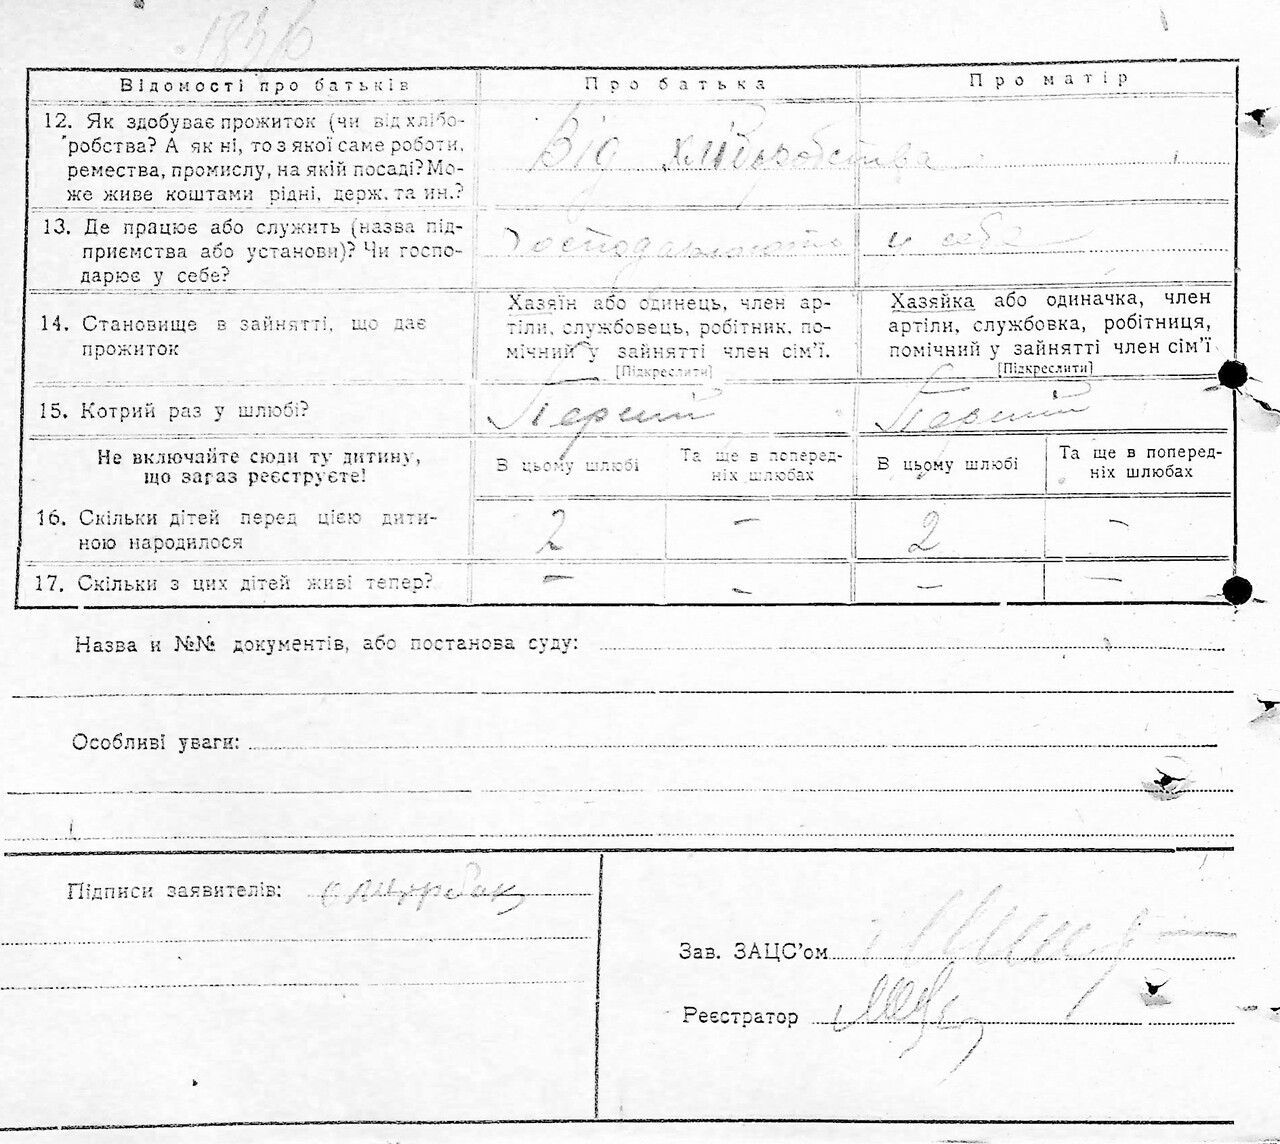 Відомості про батьків Про батька Про матір
12. Як здобуває прожиток (чи від хлібо-
робства? А як ні, то з якої саме роботи,
ремества, промислу, на якій посаді? Мо-
же живе коштами рідні, держ. та ин.?
Від хліборобства
13. Де працює або служить (назва під-
приємства або установи)? Чи госпо-
дарює у себе?
у себе
14. Становище в зайнятті, що дає
прожиток
Хазяїн або одинець, член ар-
тіли, службовець, робітник, по-
мічний у зайнятті член сім’ї.
[Підкреслити]
Хазяйка або одиначка, член
артіли, службовка, робітниця,
помічний у зайнятті член сім’ї
[Підкреслити]
15. Котрий раз у шлюбі? Перший Перший
Не включайте сюди ту дитину,
що зараз реєструєте!
В цьому шлюбі
Та ще в поперед-
ніх шлюбах
В цьому шлюбі
Та ще в поперед-
ніх шлюбах
16. Скільки дітей перед цією дити-
ною народилося
2 — 2 —
17. Скільки з цих дітей живі тепер? — — — —
Назва и №№ документів, або постанова суду:
Особливі уваги:
Підписи заявителів:
Зав. ЗАЦС’ом
Реєстратор